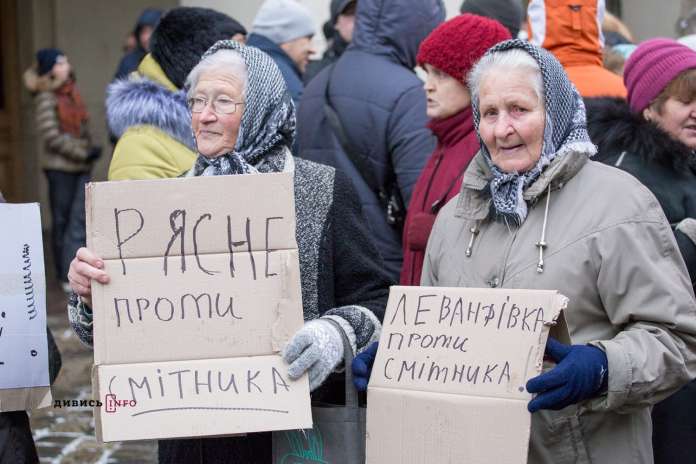 РЯСНЕ
ПРОТИ
СМІТНИКА
ЛЕВАНДІВКА
ПРОТИ
СМІТНИКА
ДИВИСЬ.INFO